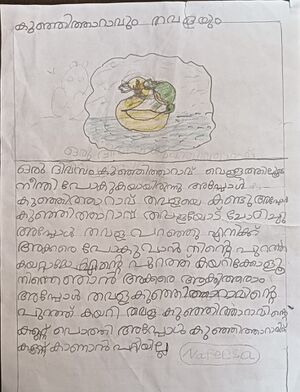 കുഞ്ഞിത്താറാവും തവളയും
ഒരു ദിവസം കുഞ്ഞിത്താറാവ് വെള്ളത്തിലൂടെ
നീന്തി പോകുകയായിരുന്നു അപ്പോൾ
കുഞ്ഞിത്താറാവ് തവളയെ കണ്ടു അപ്പോൾ
കുഞ്ഞിത്താറാവ് തവളയോട് ചോദിച്ചു
അപ്പോൾ തവള പറഞ്ഞു എനിക്ക്
അക്കരെ പോകുവാൻ നിന്റെ പുറത്ത്
കയറ്റാമോ എന്റെ പുറത്ത് കയറിക്കോളൂ
നിന്നെ ഞാൻ അക്കരെ ആക്കിത്തരാം
അപ്പോൾ തവള കുഞ്ഞിത്താറാവിന്റെ
പുറത്ത് കയറി തവള കുഞ്ഞിത്താറാവിന്റെ
കണ്ണ് പൊത്തി അപ്പോൾ കുഞ്ഞിത്താറാവിന്
കണ്ണ് കാണാൻ പറ്റിയില്ല
Nafeesa